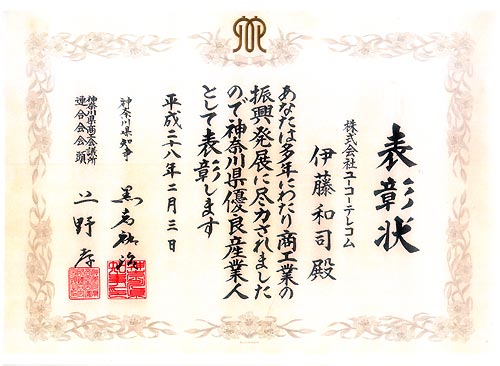 表彰状
株式会社ユーコーテレコム
伊藤和司殿
あなたは多年にわたり商工業の
振興発展に尽力されました
ので神奈川県優良産業人
として表彰します
平成二十八年二月三日
神奈川県知事 黒岩祐治
神奈川県商工会議所
連合会会頭 上野孝